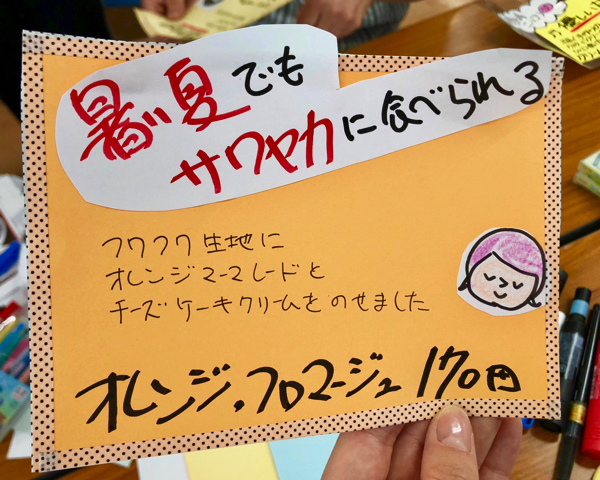 暑い夏でも
サワヤカに食べられる
フワフワ生地に
オレンジマーマレードと
チーズケーキクリームをのせました
オレンジ・フロマージュ 170円